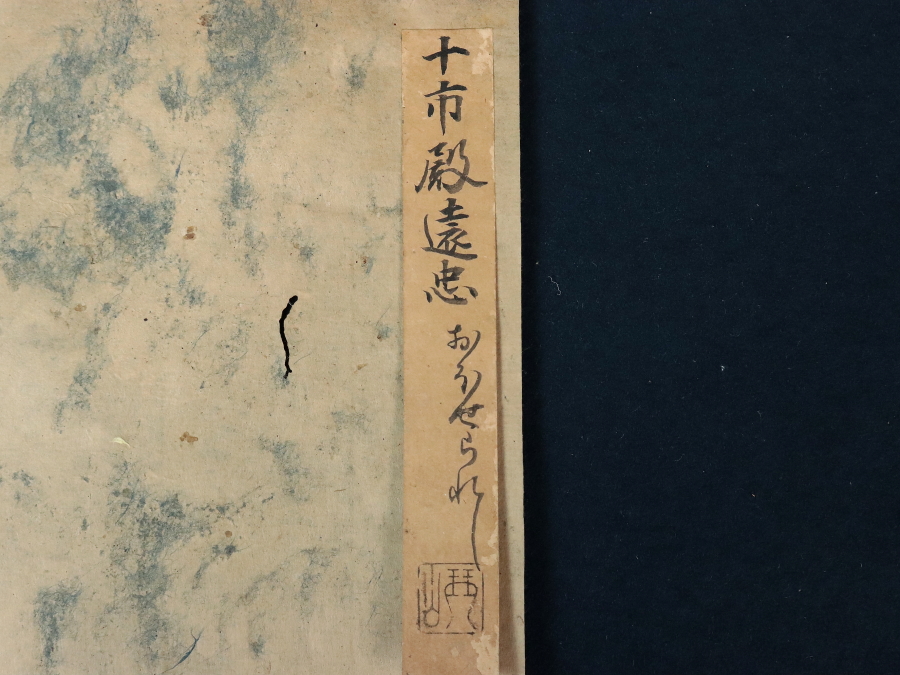 十市殿遠忠おほせられし
琴山